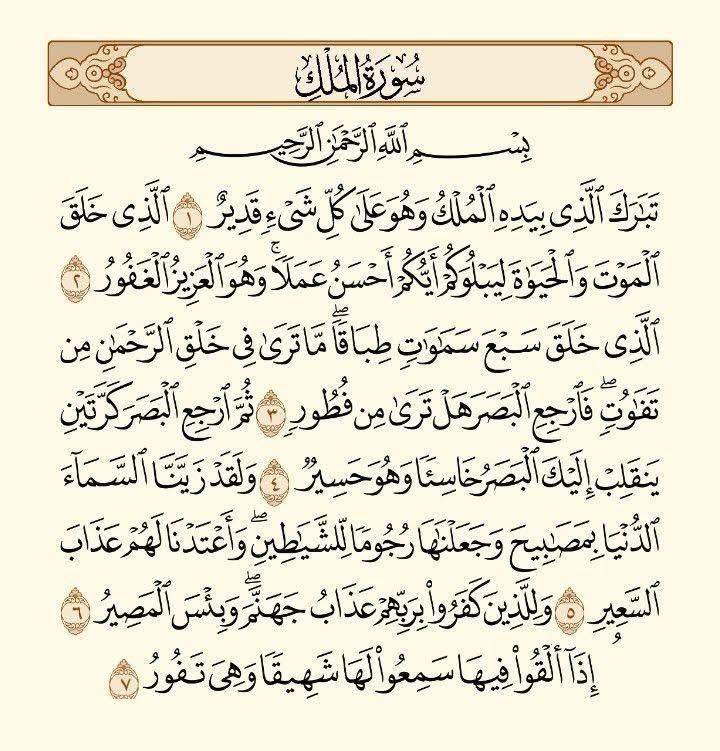 سُورَةُ المُلْكِ
بِسْمِ ٱللَّهِ ٱلرَّحْمَٰنِ ٱلرَّحِيمِ
تَبَٰرَكَ ٱلَّذِى بِيَدِهِ ٱلْمُلْكُ وَهُوَ عَلَىٰ كُلِّ شَىْءٍ قَدِيرٌ ١ ٱلَّذِى خَلَقَ
ٱلْمَوْتَ وَٱلْحَيَوٰةَ لِيَبْلُوَكُمْ أَيُّكُمْ أَحْسَنُ عَمَلًا ۚ وَهُوَ ٱلْعَزِيزُ ٱلْغَفُورُ ٢
ٱلَّذِى خَلَقَ سَبْعَ سَمَٰوَٰتٍ طِبَاقًا ۖ مَّا تَرَىٰ فِى خَلْقِ ٱلرَّحْمَٰنِ مِن
تَفَٰوُتٍ ۖ فَٱرْجِعِ ٱلْبَصَرَ هَلْ تَرَىٰ مِن فُطُورٍ ٣ ثُمَّ ٱرْجِعِ ٱلْبَصَرَ كَرَّتَيْنِ
يَنقَلِبْ إِلَيْكَ ٱلْبَصَرُ خَاسِئًا وَهُوَ حَسِيرٌ ٤ وَلَقَدْ زَيَّنَّا ٱلسَّمَآءَ
ٱلدُّنْيَا بِمَصَٰبِيحَ وَجَعَلْنَٰهَا رُجُومًا لِّلشَّيَٰطِينِ ۖ وَأَعْتَدْنَا لَهُمْ عَذَابَ
ٱلسَّعِيرِ ٥ وَلِلَّذِينَ كَفَرُوا۟ بِرَبِّهِمْ عَذَابُ جَهَنَّمَ ۖ وَبِئْسَ ٱلْمَصِيرُ ٦
إِذَآ أُلْقُوا۟ فِيهَا سَمِعُوا۟ لَهَا شَهِيقًا وَهِىَ تَفُورُ ٧